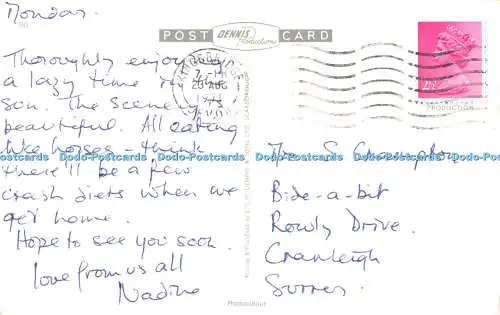 Monday
POST CARD
DENNIS
Productions
Thoroughly enjoying
a lazy time in the
sun. The scenery is
beautiful. All eating
like horses - think
there'll be a few
crash diets when we
get home.
Hope to see you soon.
love from us all
Nadine
20 AUG
2½P
The S Crampton
Bide-a-bit
Rowly Drive.
Cranleigh
Surrey
Photocolour
Dodo-Postcards Dodo-Postcards Dodo-Postcards Dodo-Postcards Dodo-Postcards